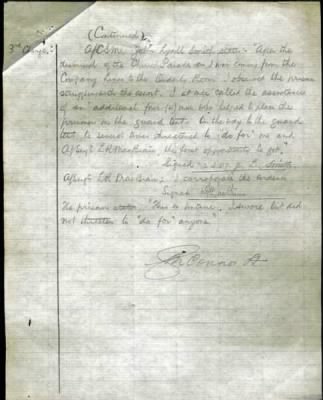 (Continued).
3rd Charge:- A/CSM. John Lyall Smith states:- "After the
dismissal of the Parade as I was coming from the
Company lines to the Orderly Room I observed the prisoner
struggling with the escort. I at once called the assistance
of an additional four (4) men who helped to place the
prisoner in the guard tent. On the way to the guard
tent he several times threatened to "do for" me and
A/Sergt L.R. MacBain, the first opportunity he got."
Signed J. L. Smith
A/Sergt L.R. MacBain:- I corroborate the evidence
Signed
The prisoner states:- "This is untrue. I swore but did
not threaten to "do for" anyone"